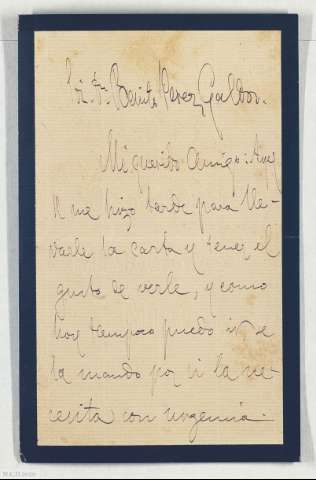 Sr. Dn. Benito Perez Galdos.
Mi querido Amigo: Ayer
se me hizo tarde para lle-
varle la carta y tener el
gusto de verle, y como
hoy tampoco puedo ir se
la mando por si la ne-
cesita con urgencia.